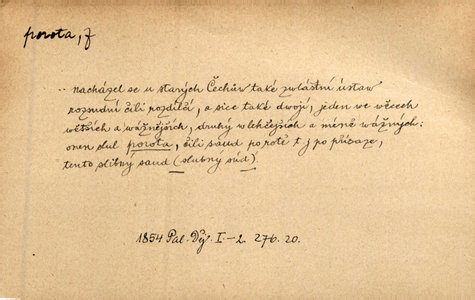 porota, f
.. nacházel se u starých Čechův také zvláštní ústaw
rozsudní čili rozdílčí, a sice také dwojí, jeden we wěcech
wětších a wážnějších, druhý w lehčejších a méně wážných:
onen slul porota, čili saud po rotě t. j. po přísaze,
tento slibný saud (slubny súd).
1854 Pal. Děj. I-2. 276. 20.